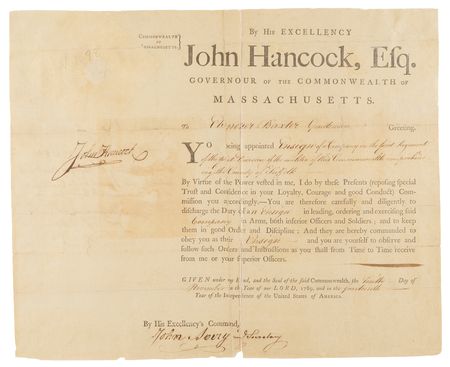 COMMONWEALTH
OF
MASSACHUSETTS.
BY HIS EXCELLENCY
John Hancock, Esq.
GOVERNOUR OF THE COMMONWEALTH OF
MASSACHUSETTS.
To Ebenezer Baxter Gentleman Greeting.
YOU being appointed Ensign of a Company in the first Regiment
of the first Division of the militia of this Commonwealth comprehend-
ing the County of Suffolk
By Virtue of the Power vested in me, I do by these Presents (reposing special
Trust and Confidence in your Loyalty, Courage and good Conduct) Com-
mission you accordingly.—You are therefore carefully and diligently to
discharge the Duty of an Ensign in leading, ordering and exercising said
Company in Arms, both inferior Officers and Soldiers; and to keep
them in good Order and Discipline; And they are hereby commanded to
obey you as their Ensign and you are yourself to observe and
follow such Orders and Instructions as you shall from Time to Time receive
from me or your superior Officers.
John Hancock
GIVEN under my Hand, and the Seal of the said Commonwealth, the Day of
November in the Year of our LORD, 1789, and in the fourteenth
Year of the Independence of the United States of AMERICA.
By His Excellency's Command,
John Avery Secretary